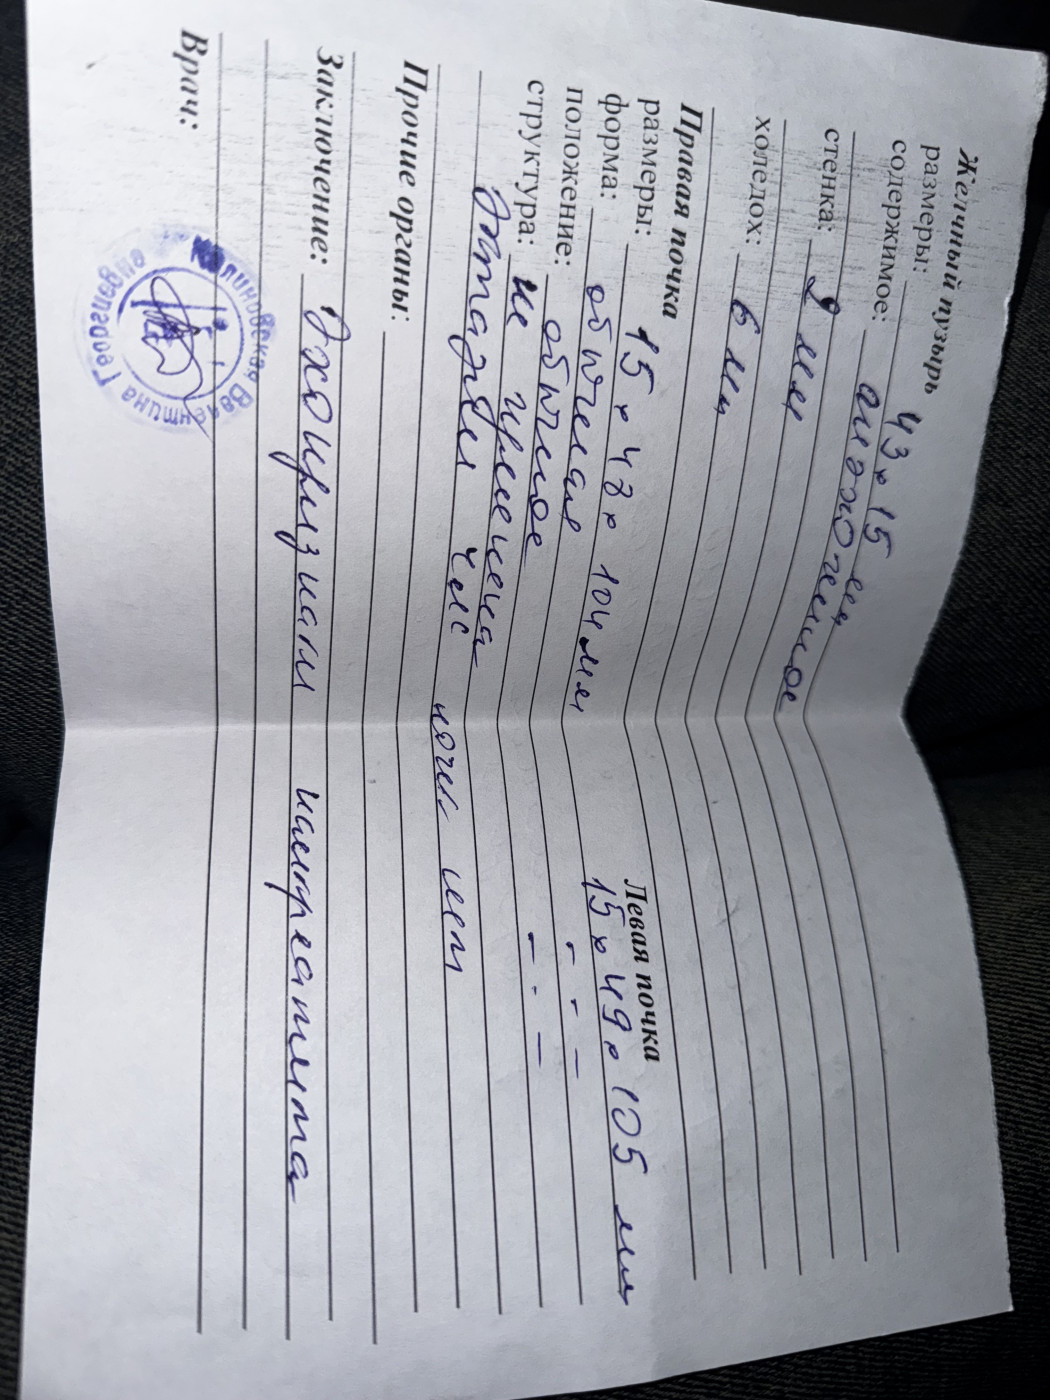 Желчный пузырь
размеры: 43 х 15 мм
содержимое: анэхогенное
стенка: 2 мм
холедох: 6 мм
Правая почка Левая почка
размеры: 15 х 48 х 104 мм 15 х 49 х 105 мм
форма: обычная - - -
положение: обычное - - -
структура: не изменена
Эктазии чмс почек нет
Прочие органы:
Заключение: Эхопризнаки
Врач:
Валентина Георгиевна